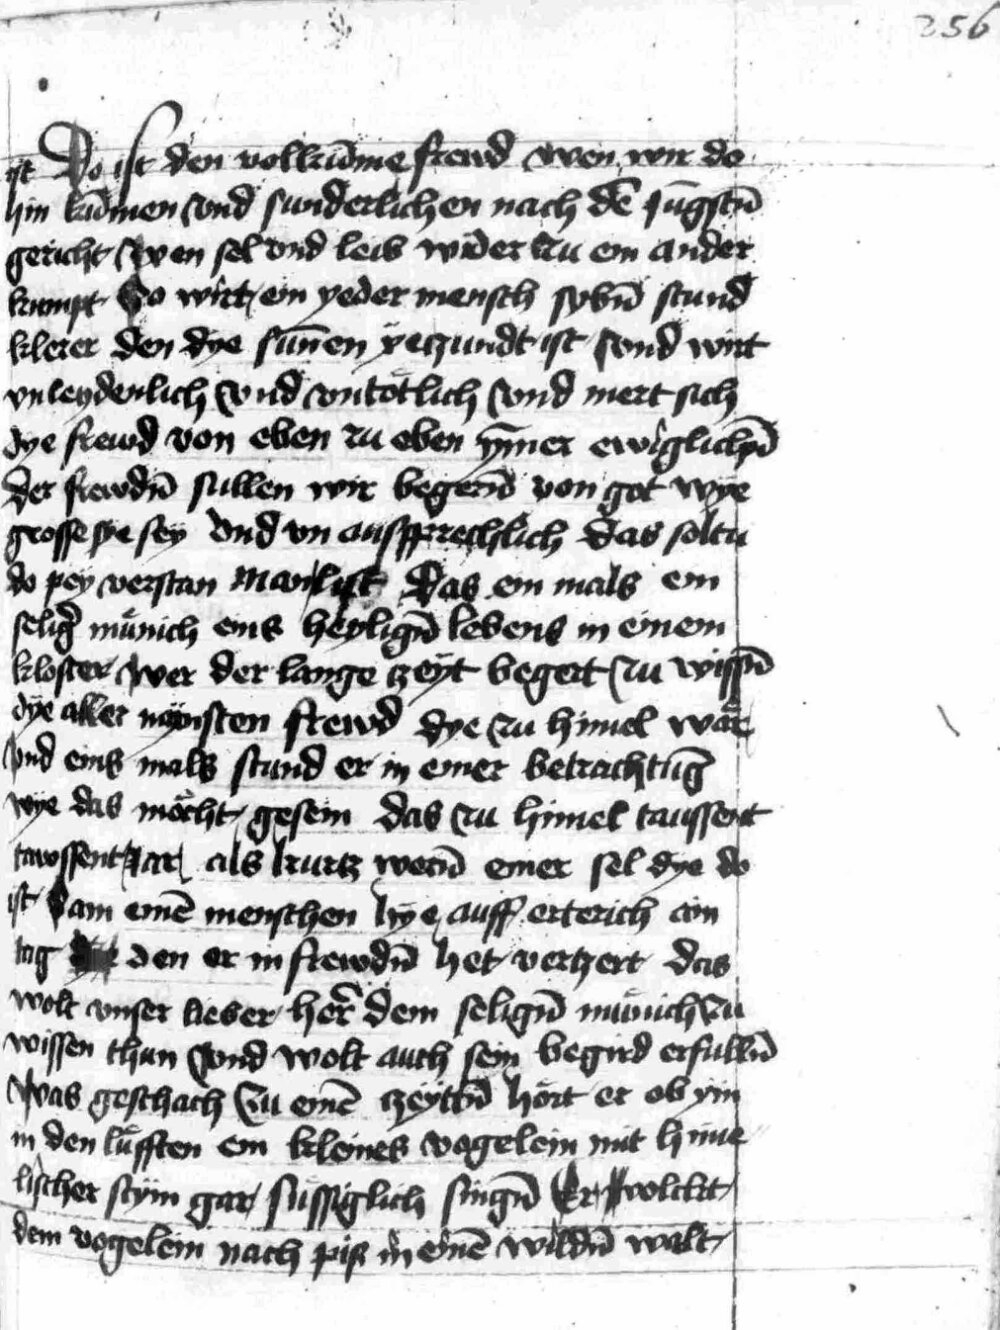 256
ist Do ist den volkūme frewd wen wir do
hin kūmen vnd sunderlichen nach dē jūgstn̄
gericht Wen sel vnd leib wider zu ein ander
kumpt So wirt ein yeder mensch sybn̄ stund
klerer den dye sūnen yeczundt ist vnd wirt
vnleydenlich vnd vntötlich vnd mert sich
dye frewd von eben zu eben ȳmer ewiglichn̄
Der frewdn̄ sullen wir begern̄ von got wye
grosse sye sey vnd vn aussprechlich das soltu
do pey verstan Man list Das ein mals ein
selig' münich eins heylign̄ lebens in einem
kloster wer der lange czeyt begert zu wissn̄
dye aller mynsten frewd dye zu himel wär
vnd eins mals stund er in einer betrachtūg
wye das möcht gesein das zu himel taussent
tawssent jar als kurtz wern̄ einer sel dye do
ist Sam einē menschen hye auff erterich ein
tag den er in frewdn̄ het verczert das
wolt vnser lieber her̄ dem selign̄ münich zu
wissen thun vnd wolt auch sein begird erfulln̄
Was geschach Zu einē czeyttn̄ hört er ob ym
in den lüfften ein kleines vogelein mit hime
lischer stym gar süssiglich singn̄ Er volckt
dem vogelein nach pis in einē wildn̄ walt